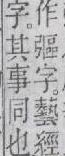 作彊字藝經
字其事同也